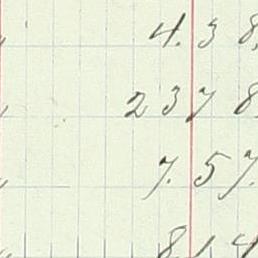 4.38
2378
7.57.
8.14